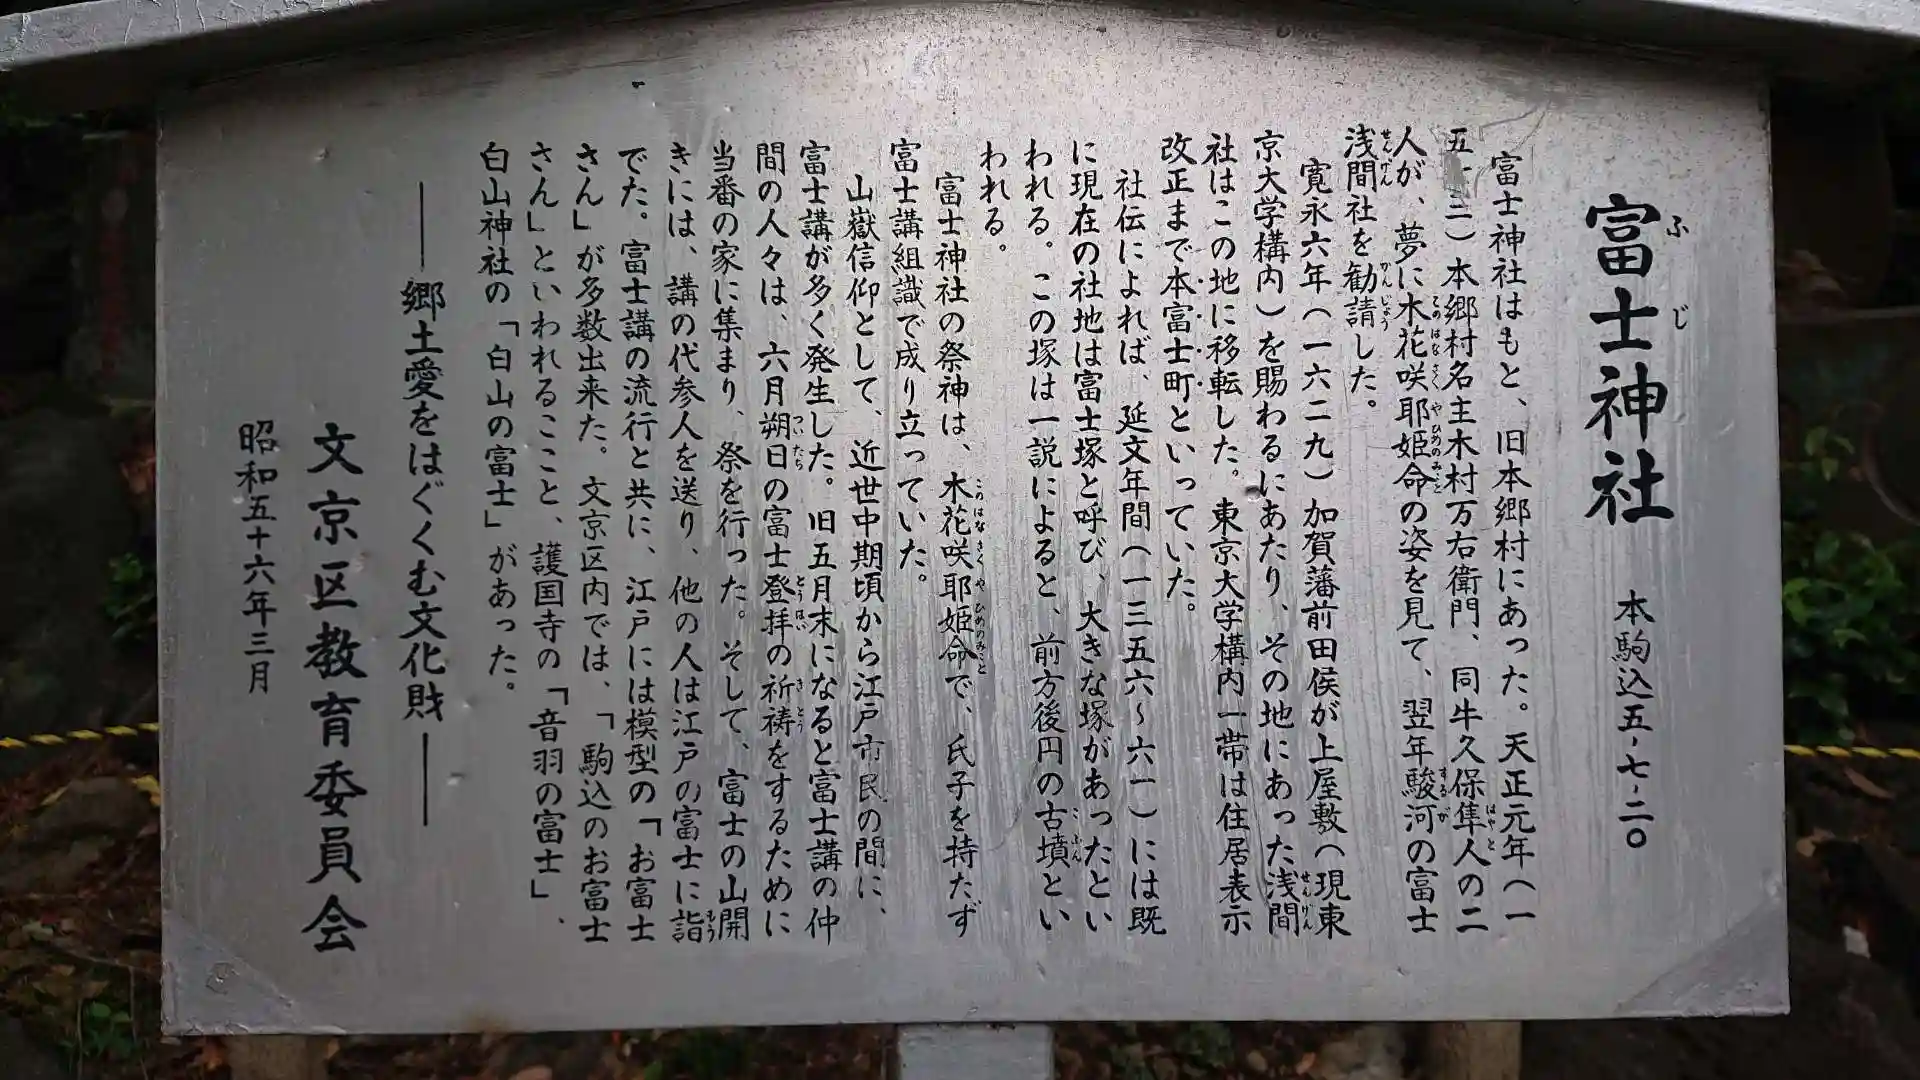 富士神社　本駒込五-七-二〇
富士神社はもと、旧本郷村にあった。天正元年（一
五 三）本郷村名主木村万右衛門、同牛久保隼人の二
人が、夢に木花咲耶姫命の姿を見て、翌年駿河の富士
浅間社を勧請した。
寛永六年（一六二九）加賀藩前田侯が上屋敷（現東
京大学構内）を賜わるにあたり、その地にあった浅間
社はこの地に移転した。東京大学構内一帯は住居表示
改正まで本富士町といっていた。
社伝によれば、延文年間（一三五六～六一）には既
に現在の社地は富士塚と呼び、大きな塚があったとい
われる。この塚は一説によると、前方後円の古墳とい
われる。
富士神社の祭神は、木花咲耶姫命で、氏子を持たず
富士講組識で成り立っていた。
山嶽信仰として、近世中期頃から江戸市民の間に、
富士講が多く発生した。旧五月末になると富士講の仲
間の人々は、六月朔日の富士登拝の祈祷をするために
当番の家に集まり、祭を行った。そして、富士の山開
きには、講の代参人を送り、他の人は江戸の富士に詣
でた。富士講の流行と共に、江戸には模型の「お富士
さん」が多数出来た。文京区内では、「駒込のお富士
さん」といわれるここと、護国寺の「音羽の富士」、
白山神社の「白山の富士」があった。
――郷土愛をはぐくむ文化財――
文京区教育委員会
昭和五十六年三月